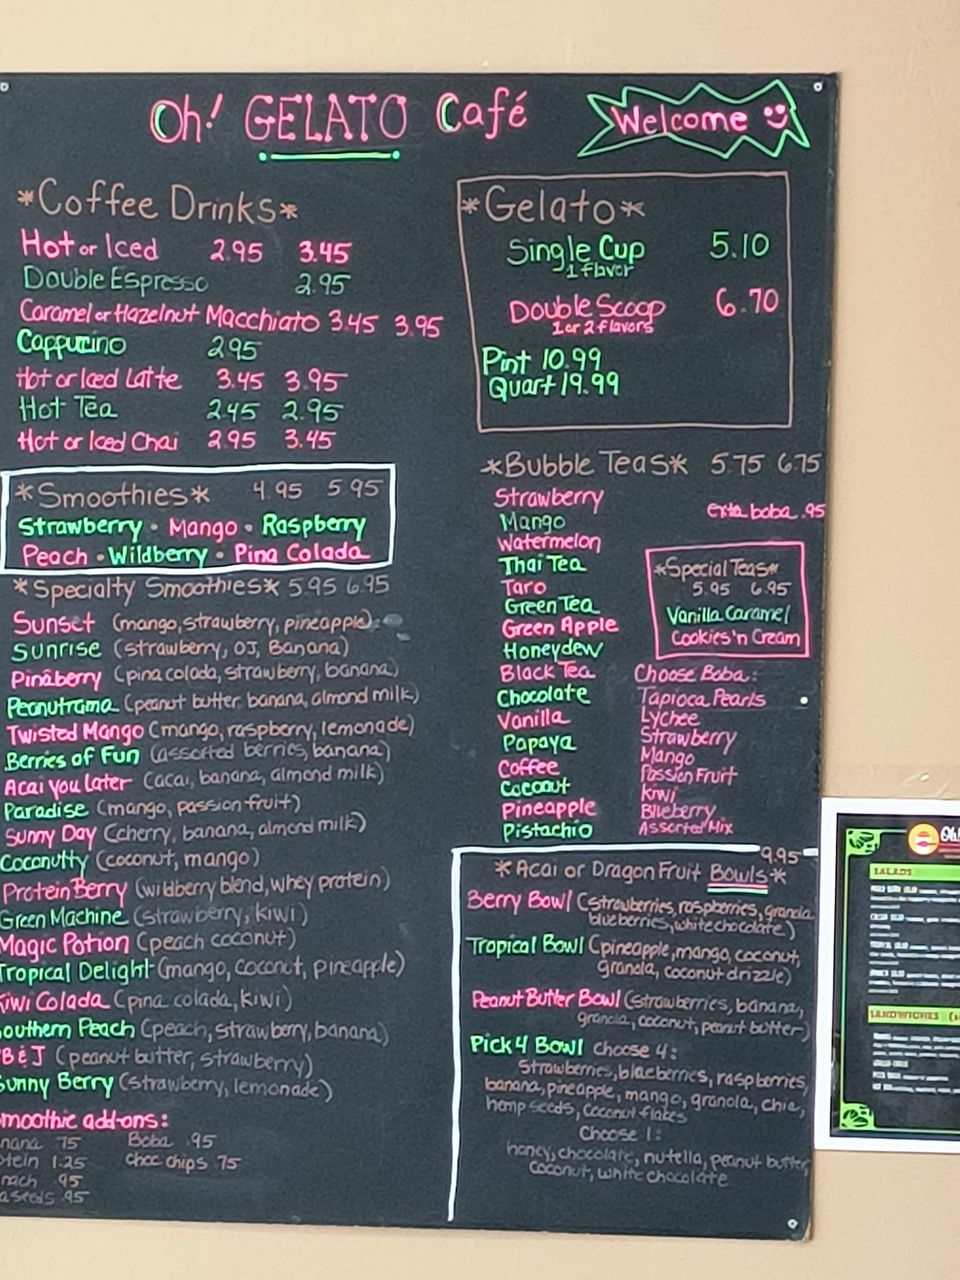 Oh! GELATO Café
Welcome
*Coffee Drinks*
Hot or Iced 2.95 3.45
Double Espresso 2.95
Caramel or Hazelnut Macchiato 3.45 3.95
Cappucino 2.95
Hot or Iced Latte 3.45 3.95
Hot Tea 2.45 2.95
Hot or Iced Chai 2.95 3.45
*Smoothies* 4.95 5.95
Strawberry • Mango • Raspberry
Peach • Wildberry • Pina Colada
*Specialty Smoothies* 5.95 6.95
Sunset (mango, strawberry, pineapple)
Sunrise (strawberry, OJ, Banana)
Pinaberry (pina colada, strawberry, banana)
Peanutrama (peanut butter, banana, almond milk)
Twisted Mango (mango, raspberry, lemonade)
Berries of Fun (assorted berries, banana)
Acai you Later (acai, banana, almond milk)
Paradise (mango, passion-fruit)
Sunny Day (cherry, banana, almond milk)
Coconutty (coconut, mango)
Protein Berry (wildberry blend, whey protein)
Green Machine (strawberry, kiwi)
Magic Potion (peach coconut)
Tropical Delight (mango, coconut, pineapple)
Kiwi Colada (pina colada, kiwi)
Southern Peach (peach, strawberry, banana)
PB&J (peanut butter, strawberry)
Sunny Berry (strawberry, lemonade)
moothie add-ons:
nana .75 Boba .95
otein 1.25 choc chips .75
nach .95
a seeds .95
*Gelato*
Single Cup 5.10
1 flavor
Double Scoop 6.70
1 or 2 flavors
Pint 10.99
Quart 19.99
*Bubble Teas* 5.75 6.75
exta boba .95
Strawberry
Mango
Watermelon
Thai Tea
Taro
Green Tea
Green Apple
Honeydew
Black Tea
Chocolate
Vanilla
Papaya
Coffee
Coconut
Pineapple
Pistachio
*Special Teas*
5.95 6.95
Vanilla Caramel
Cookies 'n Cream
Choose Boba:
Tapioca Pearls
Lychee
Strawberry
Mango
Passion Fruit
Kiwi
Blueberry
Assorted Mix
9.95
*Acai or Dragon Fruit Bowls*
Berry Bowl (strawberries, raspberries, granola
blueberries, white chocolate)
Tropical Bowl (pineapple, mango, coconut,
granola, coconut drizzle)
Peanut Butter Bowl (strawberries, banana,
granola, coconut, peanut butter)
Pick 4 Bowl Choose 4:
Strawberries, blueberries, raspberries,
banana, pineapple, mango, granola, chia,
hemp seeds, coconut flakes
Choose 1:
honey, chocolate, nutella, peanut butter,
coconut, white chocolate
Oh!
SALADS
SANDWICHES